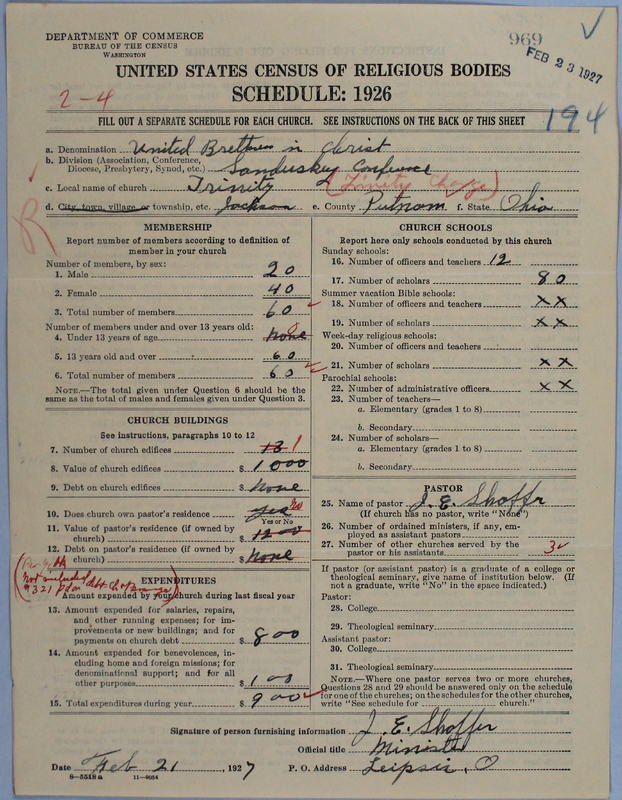 DEPARTMENT OF COMMERCE
BUREAU OF THE CENSUS
WASHINGTON
969
FEB 23 1927
UNITED STATES CENSUS OF RELIGIOUS BODIES
SCHEDULE: 1926
2-4
FILL OUT A SEPARATE SCHEDULE FOR EACH CHURCH. SEE INSTRUCTIONS ON THE BACK OF THIS SHEET
194
a. Denomination United Brethren in Christ
b. Division (Association, Conference, Diocese, Presbytery, Synod, etc.) Sandusky Conference
c. Local name of church Trinity (Trinity Charge)
d. City, town, village, or township, etc. Jackson e. County Putnam f. State Ohio
R
MEMBERSHIP
Report number of members according to definition of member in your church
Number of members, by sex:
1. Male 20
2. Female 40
3. Total number of members 60
Number of members under and over 13 years old:
4. Under 13 years of age none 0
5. 13 years old and over 60
6. Total number of members 60
NOTE.—The total given under Question 6 should be the same as the total of males and females given under Question 3.
CHURCH BUILDINGS
See instructions, paragraphs 10 to 12
7. Number of church edifices 1
8. Value of church edifices $ 1000
9. Debt on church edifices $ None
10. Does church own pastor's residence yes
Yes or No
11. Value of pastor's residence (if owned by church) $ 1200
12. Debt on pastor's residence (if owned by church) $ None
not included
EXPENDITURES
Amount expended by your church during last fiscal year
13. Amount expended for salaries, repairs, and other running expenses; for improvements or new buildings; and for payments on church debt $ 800
14. Amount expended for benevolences, including home and foreign missions; for denominational support; and for all other purposes $ 100
15. Total expenditures during year $ 900
CHURCH SCHOOLS
Report here only schools conducted by this church
Sunday schools:
16. Number of officers and teachers 12
17. Number of scholars 80
Summer vacation Bible schools:
18. Number of officers and teachers XX
19. Number of scholars XX
Week-day religious schools:
20. Number of officers and teachers
21. Number of scholars XX
Parochial schools:
22. Number of administrative officers XX
23. Number of teachers—
a. Elementary (grades 1 to 8)
b. Secondary
24. Number of scholars—
a. Elementary (grades 1 to 8)
b. Secondary
PASTOR
25. Name of pastor J. E. Shoffr
(If church has no pastor, write "None")
26. Number of ordained ministers, if any, employed as assistant pastors
27. Number of other churches served by the pastor or his assistants 3
If pastor (or assistant pastor) is a graduate of a college or theological seminary, give name of institution below. (If not a graduate, write "No" in the space indicated.)
Pastor:
28. College
29. Theological seminary
Assistant pastor:
30. College
31. Theological seminary
NOTE.—Where one pastor serves two or more churches, Questions 28 and 29 should be answered only on the schedule for one of the churches; on the schedules for the other churches, write "See schedule for church."
Signature of person furnishing information J. E. Shoffer
Official title Minister
Date Feb 21, 1927 P. O. Address Leipsic, O
8—5518a 11—9054